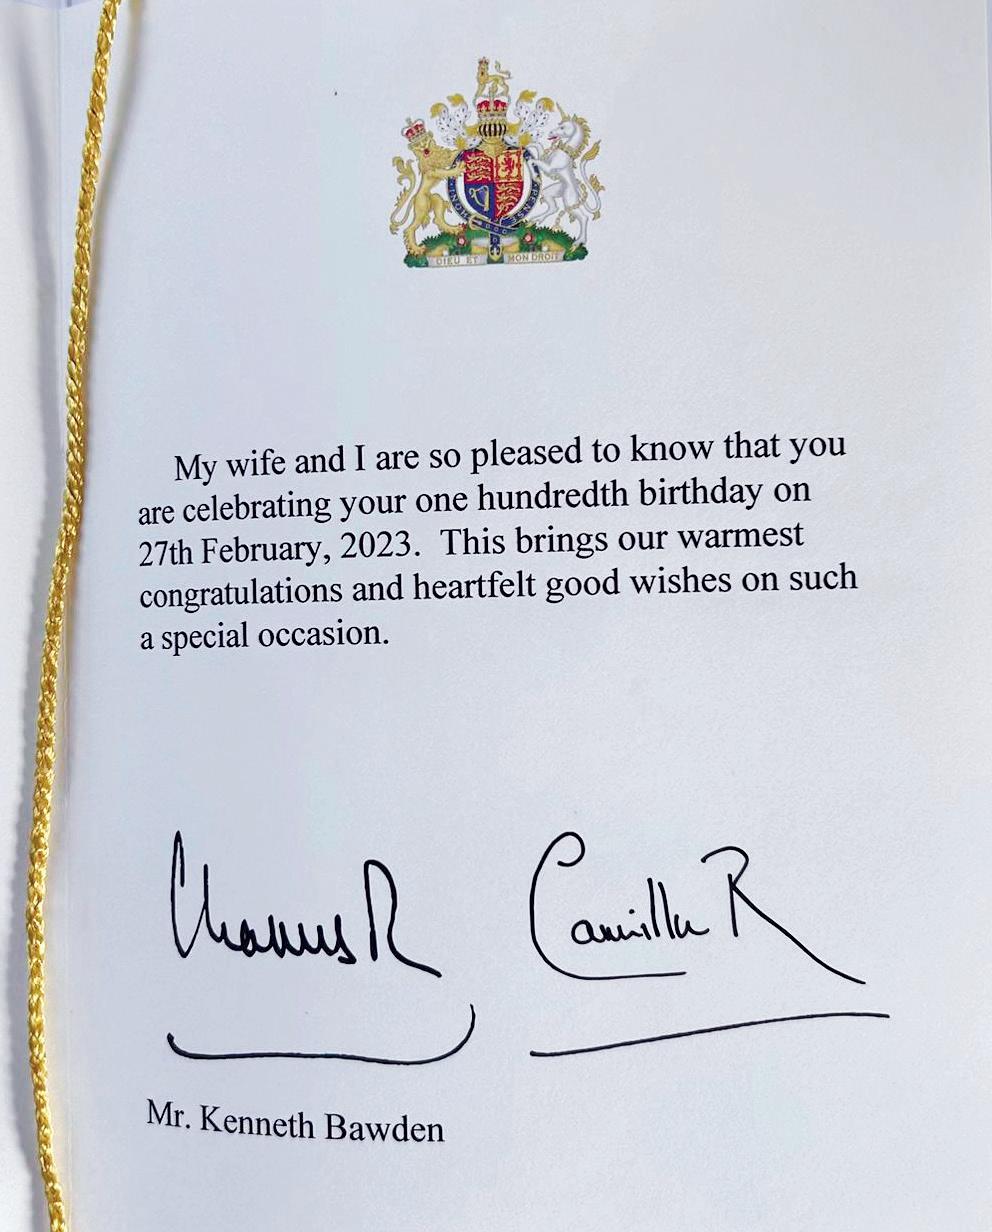 HONI PENSE
DIEU ET MON DROIT
My wife and I are so pleased to know that you
are celebrating your one hundredth birthday on
27th February, 2023. This brings our warmest
congratulations and heartfelt good wishes on such
a special occasion.
Charles R Camilla R
Mr. Kenneth Bawden